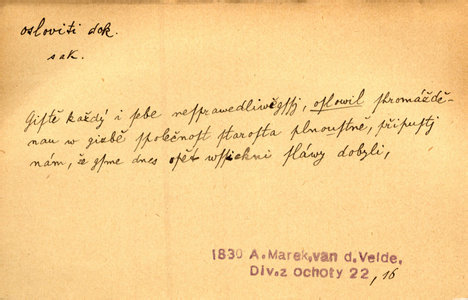 osloviti dok.
s ak.
Gistě každý i sebe nesprawedliwěgssj, oslowil shromáždě-
nau w gizbě společnost starosta plnoustně, připustj
nám, že gsme dnes opět wssickni sláwy dobyli,
1830 A. Marek, van d. Velde,
Div. z ochoty 22, 16